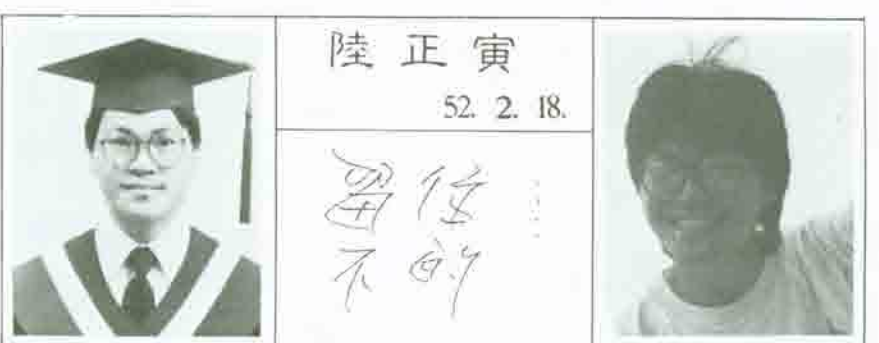 陸正寅
52. 2. 18.
留住
不的